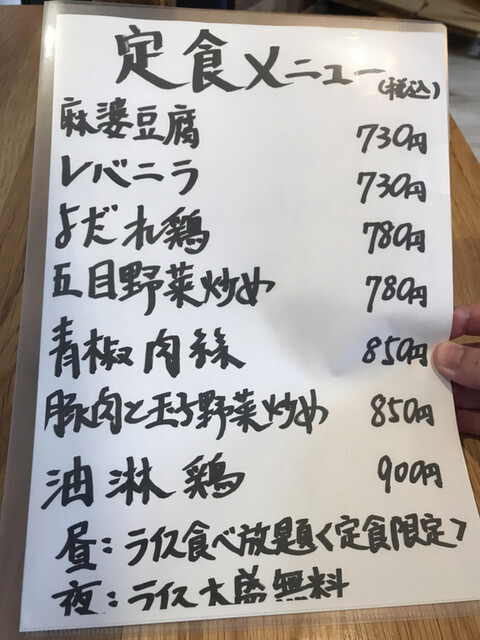 定食メニュー(税込)
麻婆豆腐 730円
レバニラ 730円
よだれ鶏 780円
五目野菜炒め 780円
青椒肉絲 850円
豚肉と玉子野菜炒め 850円
油淋鶏 900円
昼：ライス食べ放題〈定食限定〉
夜：ライス大盛無料